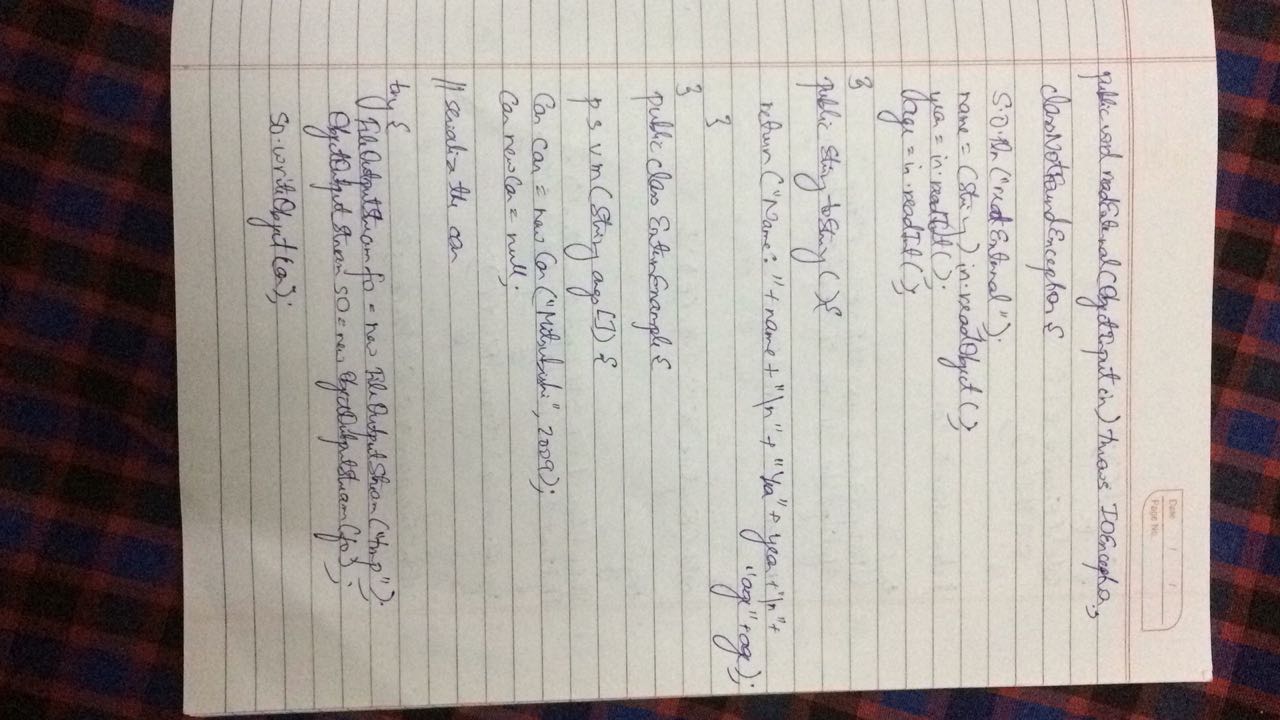 Date / /
Page No.
public void readExternal(ObjectInput in) throws IOExceptio.,
classNotFoundException {
S.O.Pln ("readExternal");
name = (String) in.readObject();
year = in.readInt();
age = in.readInt();
}
public String toString () {
return ("Name: " + name + "\n" + "Yea" + year + "\n" +
"age" + age);
}
}
public class ExternExample {
p s v m (String args []) {
Car car = new Car ("Mitsubishi", 2009);
Car newCar = null;
// serialize the car
try {
FileOutputStream fo = new FileOutputStream ("tmp");
ObjectOutputStream so = new ObjectOutputStream (fo);
so.writeObject (car);